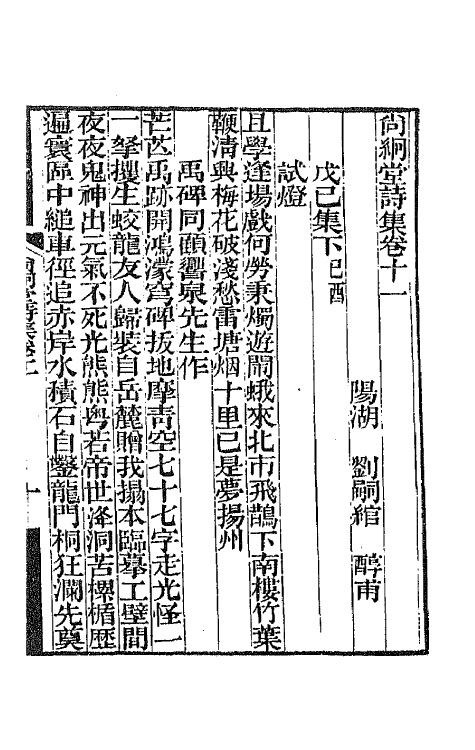 尙絅堂詩集卷十一
陽湖　劉嗣綰　醇甫
戊己集下己酉
試燈
且學逢場戲何勞秉燭遊鬧蛾來北市飛鵲下南樓竹葉
鞭清興梅花破淺愁雷塘烟十里已是夢揚州
禹碑同頤響泉先生作
芒芒禹跡開鴻濛穹碑拔地摩靑空七十七字走光怪一
一拏攫生蛟龍友人歸裝自岳麓贈我搨本臨摹工壁間
夜夜鬼神出元氣不死光熊熊粤若帝世洚洞苦檋楯歷
遍寰區中縋車徑追赤岸水積石自鑿龍門桐狂瀾先奠